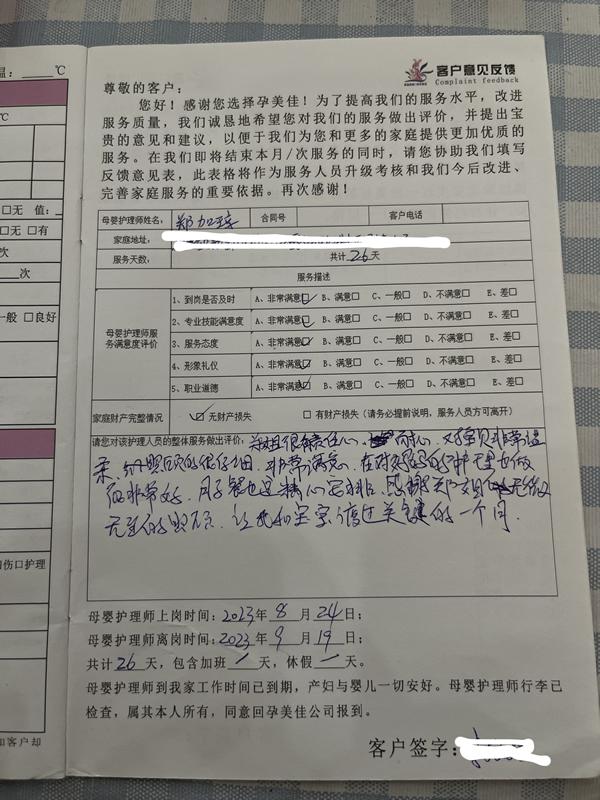 温：____℃
℃
□无 值：
□无 □有
次
次
一般 □良好
伤口护理
和客户却
客户意见反馈
Complaint feedback
尊敬的客户：
您好！感谢您选择孕美佳！为了提高我们的服务水平，改进
服务质量，我们诚恳地希望您对我们的服务做出评价，并提出宝
贵的意见和建议，以便于我们为您和更多的家庭提供更加优质的
服务。在我们即将结束本月/次服务的同时，请您协助我们填写
反馈意见表，此表格将作为服务人员升级考核和我们今后改进、
完善家庭服务的重要依据。再次感谢！
母婴护理师姓名： 郑加 合同号 客户电话
家庭地址：
服务天数： 共计26天
服务描述
母婴护理师服
务满意度评价
1、到岗是否及时 A、非常满意☑ B、满意□ C、一般□ D、不满意□ E、差□
2、专业技能满意度 A、非常满意☑ B、满意□ C、一般□ D、不满意□ E、差□
3、服务态度 A、非常满意☑ B、满意□ C、一般□ D、不满意□ E、差□
4、形象礼仪 A、非常满意☑ B、满意□ C、一般□ D、不满意□ E、差□
5、职业道德 A、非常满意☑ B、满意□ C、一般□ D、不满意□ E、差□
家庭财产完整情况 ☑无财产损失 □有财产损失（请务必提前说明，服务人员方可离开）
请您对该护理人员的整体服务做出评价： 郑姐很有责任心、耐心、对宝贝非常温
柔、照顾的很仔细、非常满意、在对妈妈的护理也做
的非常好，月子餐也是精心安排、感谢郑姐无微
不至的照顾、让我和宝宝度过关键的一个月.
母婴护理师上岗时间：2023年 8 月 24日；
母婴护理师离岗时间：2023年 9 月 19日；
共计26天，包含加班 / 天，休假 一 天。
母婴护理师到我家工作时间已到期，产妇与婴儿一切安好。母婴护理师行李已
检查，属其本人所有，同意回孕美佳公司报到。
客户签字：